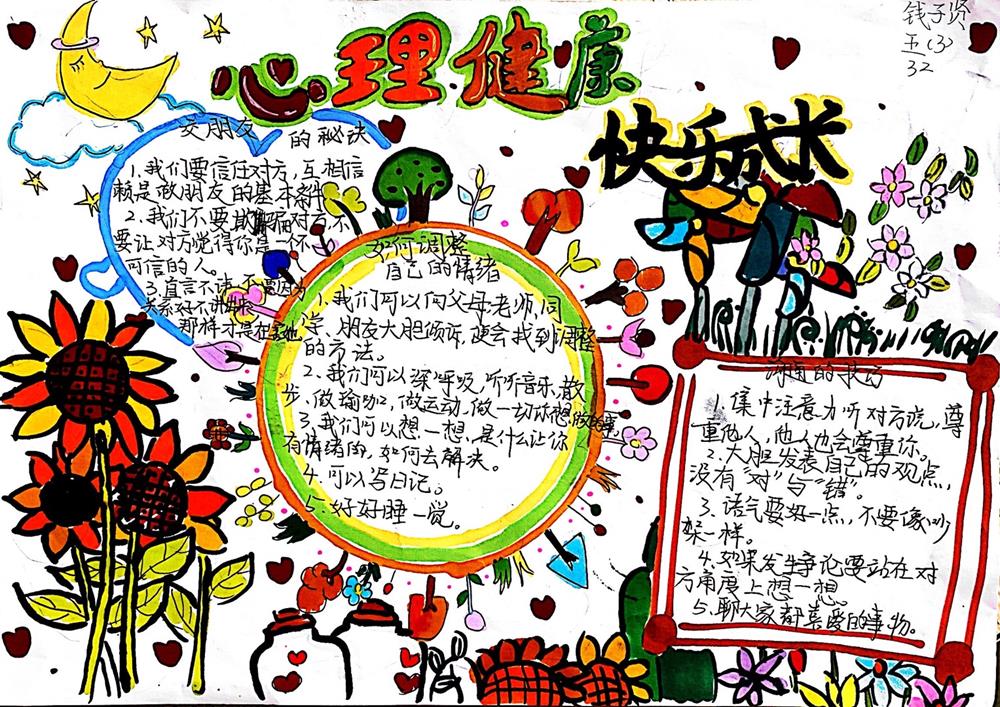 钱子贤
五(3)
32
心理健康
快乐成长
交朋友的秘诀
1.我们要信任对方,互相信
赖是做朋友的基本条件
2.我们不要欺骗对方,不
要让对方觉得你是一个不
可信的人。
3.直言不讳,不要因为
关系好不讲
那样才是在
如何调整
自己的情绪
1.我们可以向父母老师、同
学、朋友大胆倾诉,便会找到调整
的方法。
2.我们可以深呼吸,听听音乐,散
步、做瑜珈,做运动,做一切你想做的事
3.我们可以想一想,是什么让你
有情绪的,如何去解决。
4.可以写日记。
5.好好睡一觉。
沟通的技巧
1.集中注意力听对方说,尊
重他人,他人也会尊重你。
2.大胆发表自己的观点,
没有“对”与“错”。
3.语气要好一点,不要像吵
架一样。
4.如果发生争论要站在对
方角度上想一想。
5.聊大家都喜爱的事物。